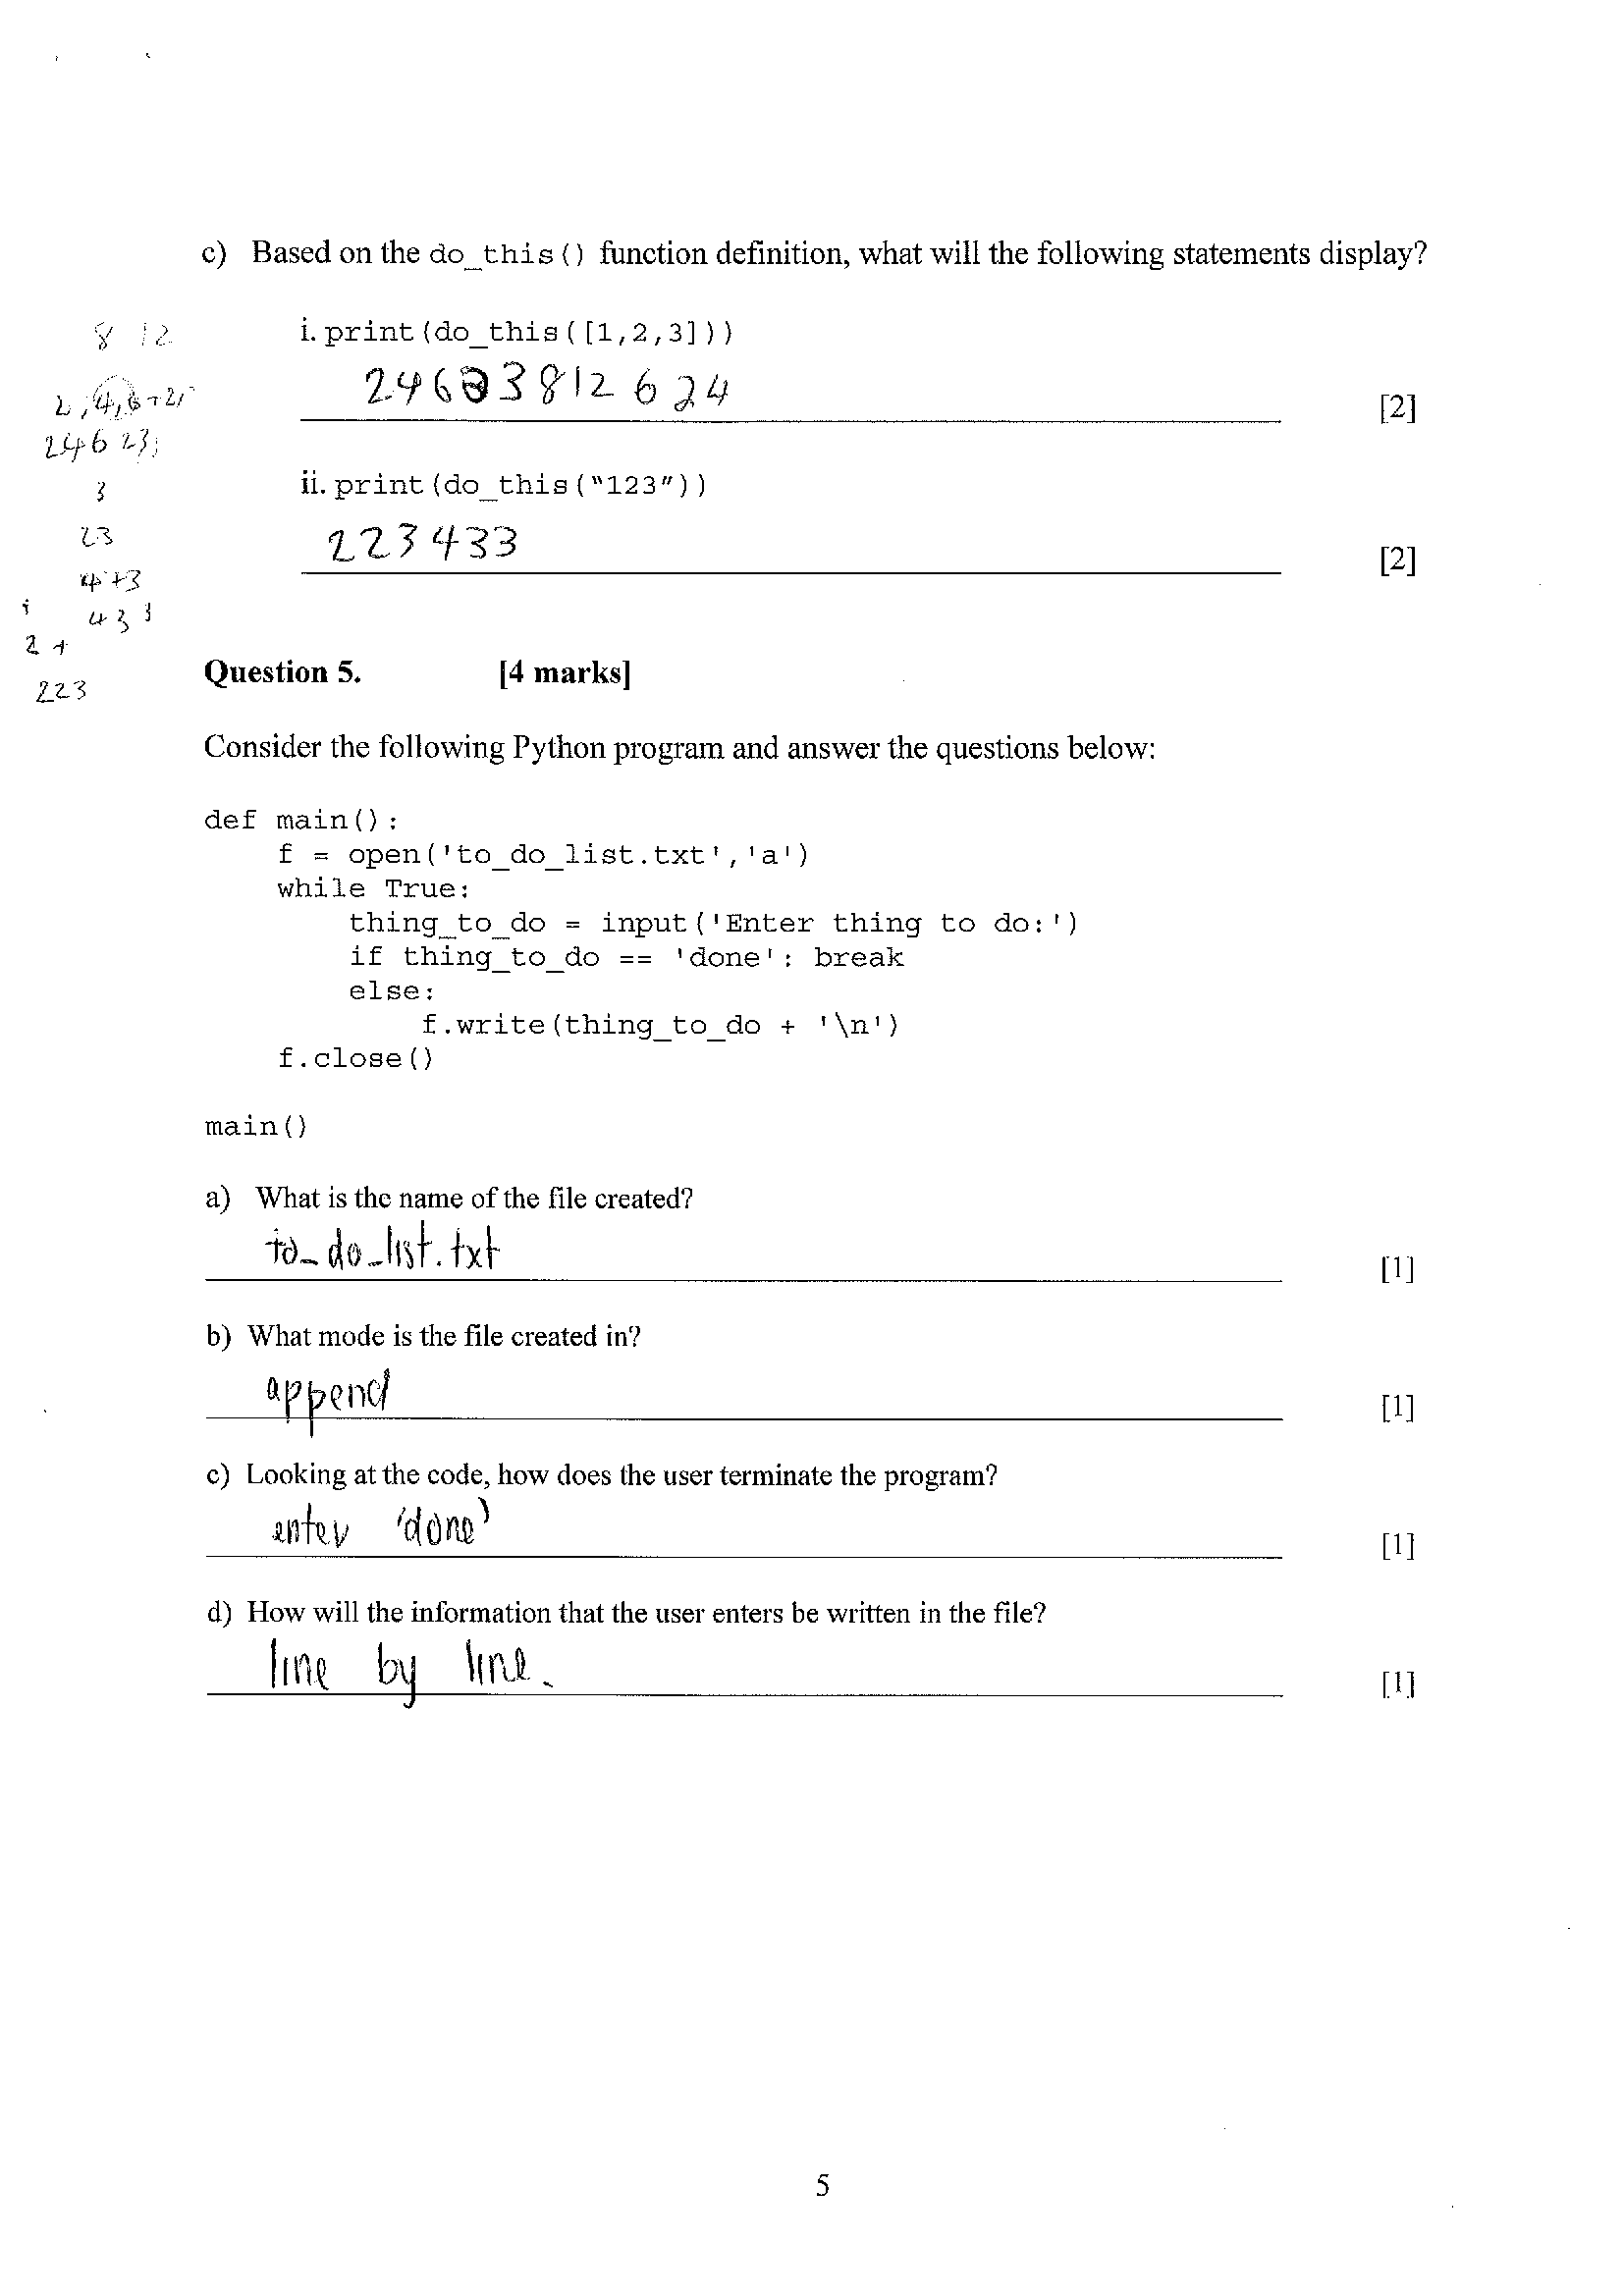 c) Based on the do_this() function definition, what will the following statements display?
8 12
i. print(do_this([1,2,3]))
2463812624
[2]
246 23
ii. print(do_this("123"))
3
23
223433
[2]
4+3
433
2+
223
Question 5. [4 marks]
Consider the following Python program and answer the questions below:
def main():
f = open('to_do_list.txt','a')
while True:
thing_to_do = input('Enter thing to do:')
if thing_to_do == 'done': break
else:
f.write(thing_to_do + '\n')
f.close()
main()
a) What is the name of the file created?
to_do_list.txt
[1]
b) What mode is the file created in?
append
[1]
c) Looking at the code, how does the user terminate the program?
enter 'done'
[1]
d) How will the information that the user enters be written in the file?
line by line.
[1]
5